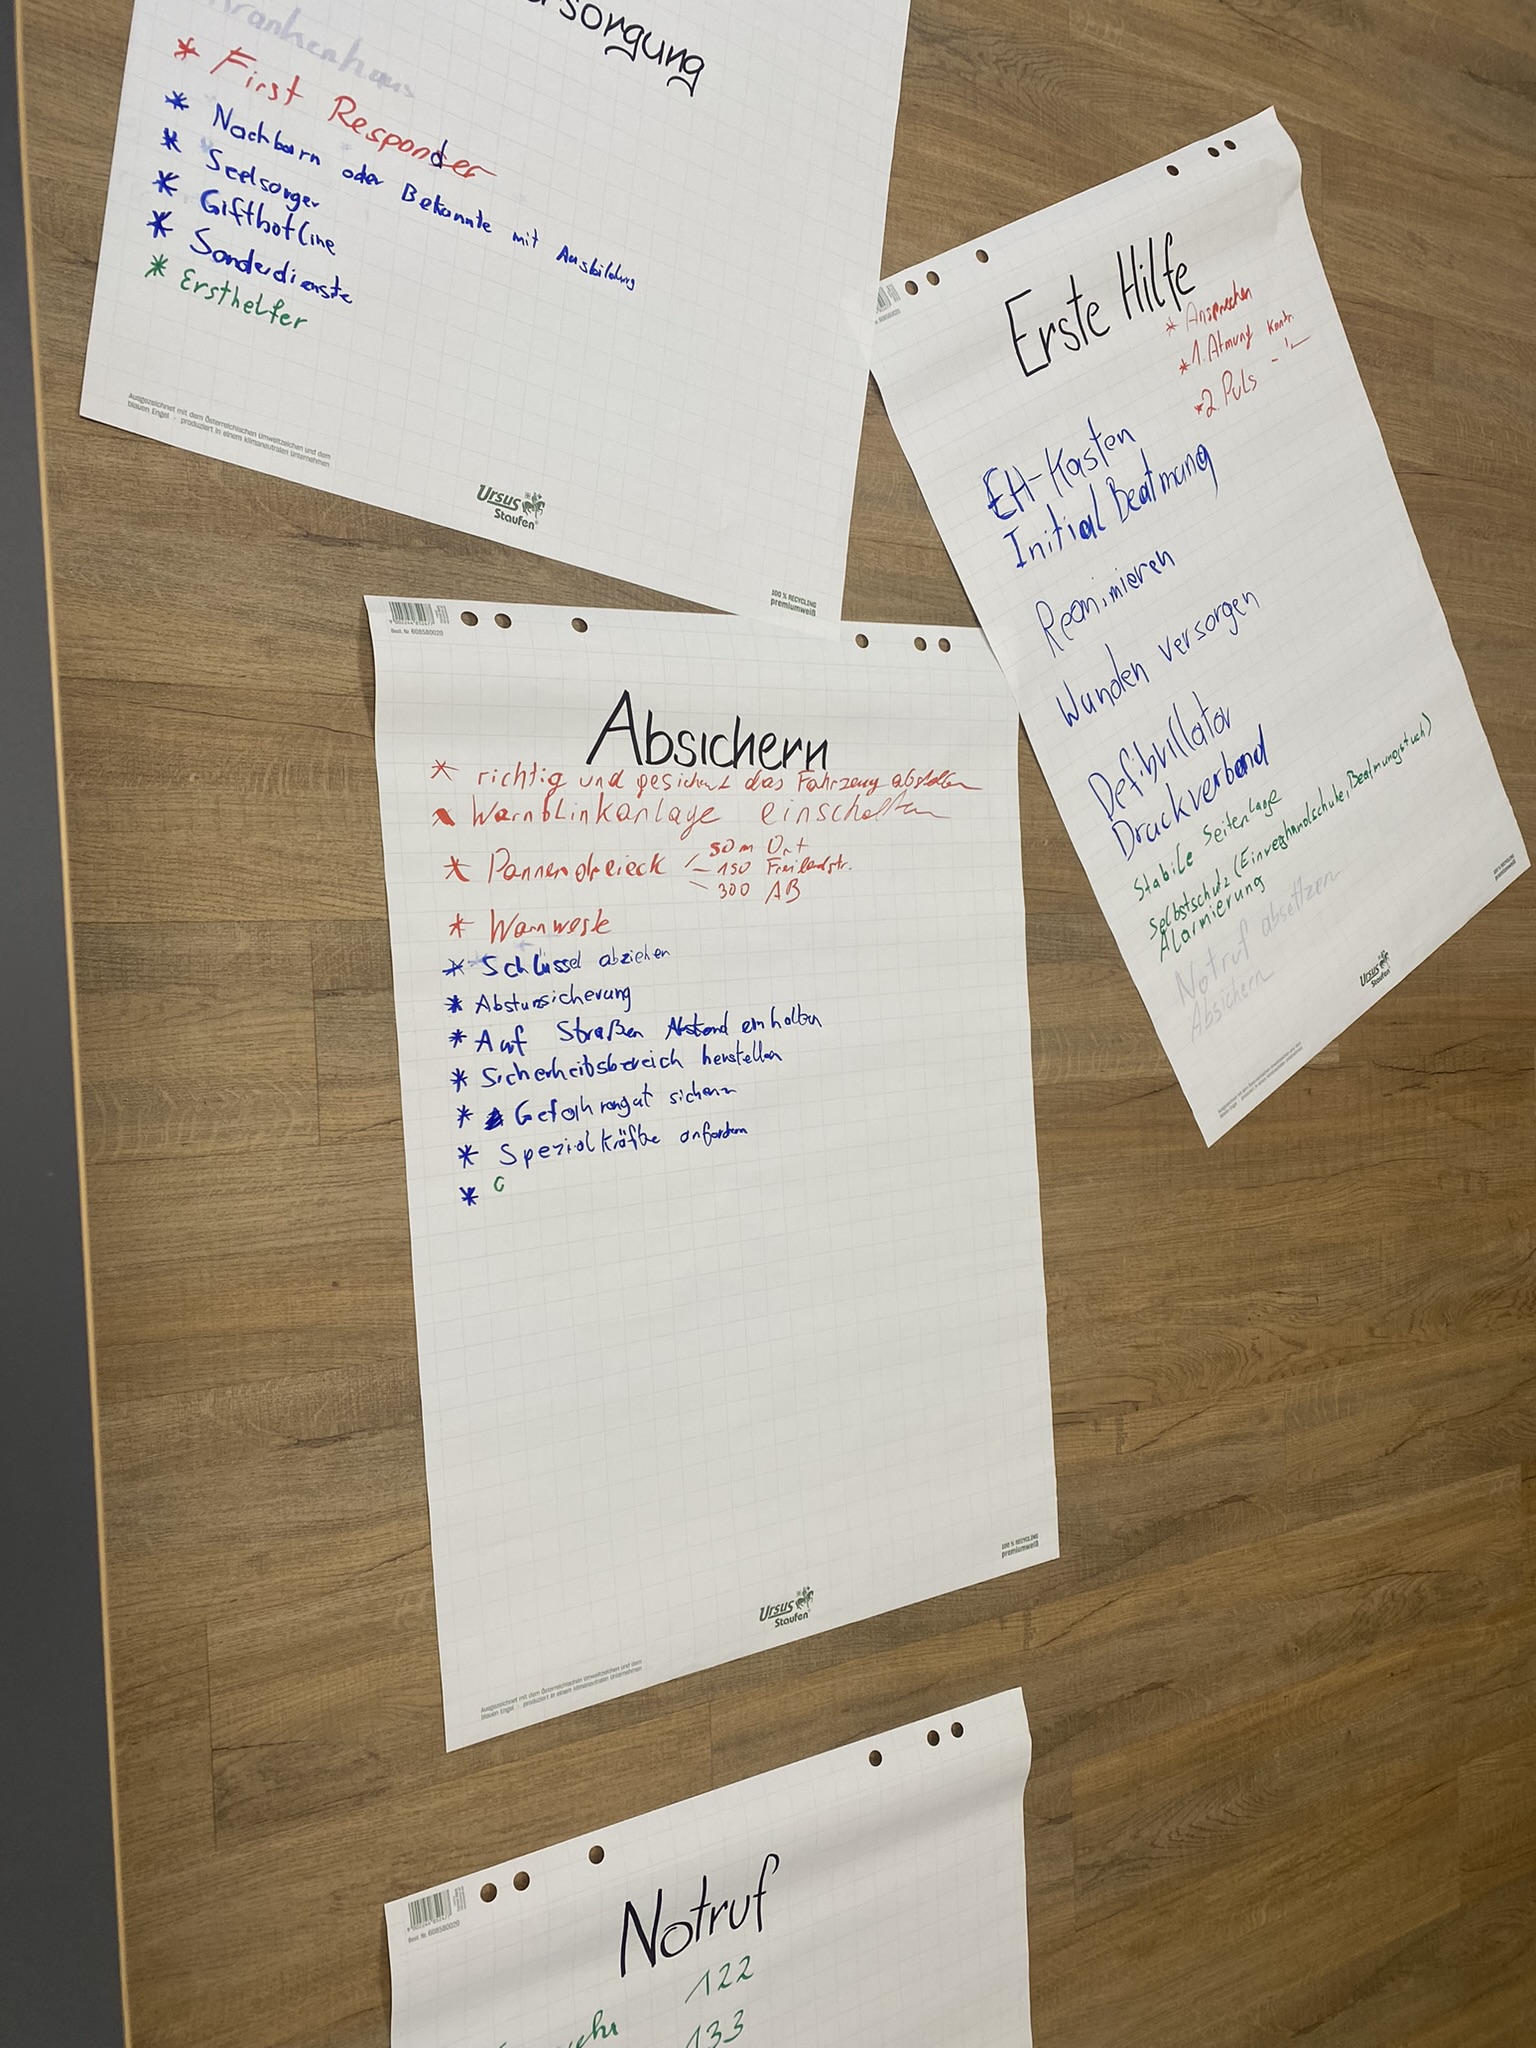 sorgung
Krankenhaus
* First Responder
* Nachbarn oder Bekannte mit Ausbildung
* Seelsorger
* Gifthotline
* Sonderdienste
* Ersthelfer
Ausgezeichnet mit dem Österreichischen Umweltzeichen und dem
blauen Engel · produziert in einem klimaneutralen Unternehmen
Ursus
Staufen
100 % RECYCLING
premiumweiß
Erste Hilfe
* Ansprechen
* 1. Atmung Kontr.
* 2. Puls -"-
EH-Kasten
Initial Beatmung
Reanimieren
Wunden versorgen
Defibrillator
Druckverband
Stabile Seitenlage
Selbstschutz (Einweghandschuhe, Beatmungstuch)
Alarmierung
Notruf absetzen
Absichern
Ursus
Staufen
100 % RECYCLING
premiumweiß
Best. Nr. 608580020
Absichern
* richtig und gesichert das Fahrzeug abstellen
Warnblinkanlage einschalten
* Pannendreieck
50m Ort
150 Freilandstr.
300 AB
* Warnweste
* Schlüssel abziehen
* Absturzsicherung
* Auf Straßen Abstand einhalten
* Sicherheitsbereich herstellen
* Gefahrengut sichern
* Spezialkräfte anfordern
*
100 % RECYCLING
premiumweiß
Ursus
Staufen
Ausgezeichnet mit dem Österreichischen Umweltzeichen und dem
blauen Engel · produziert in einem klimaneutralen Unternehmen
Best. Nr. 608580020
Notruf
122
133